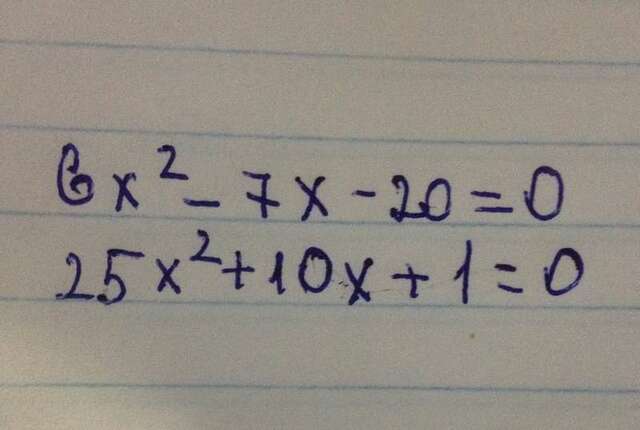 6x² - 7x - 20 = 0
25x² + 10x + 1 = 0